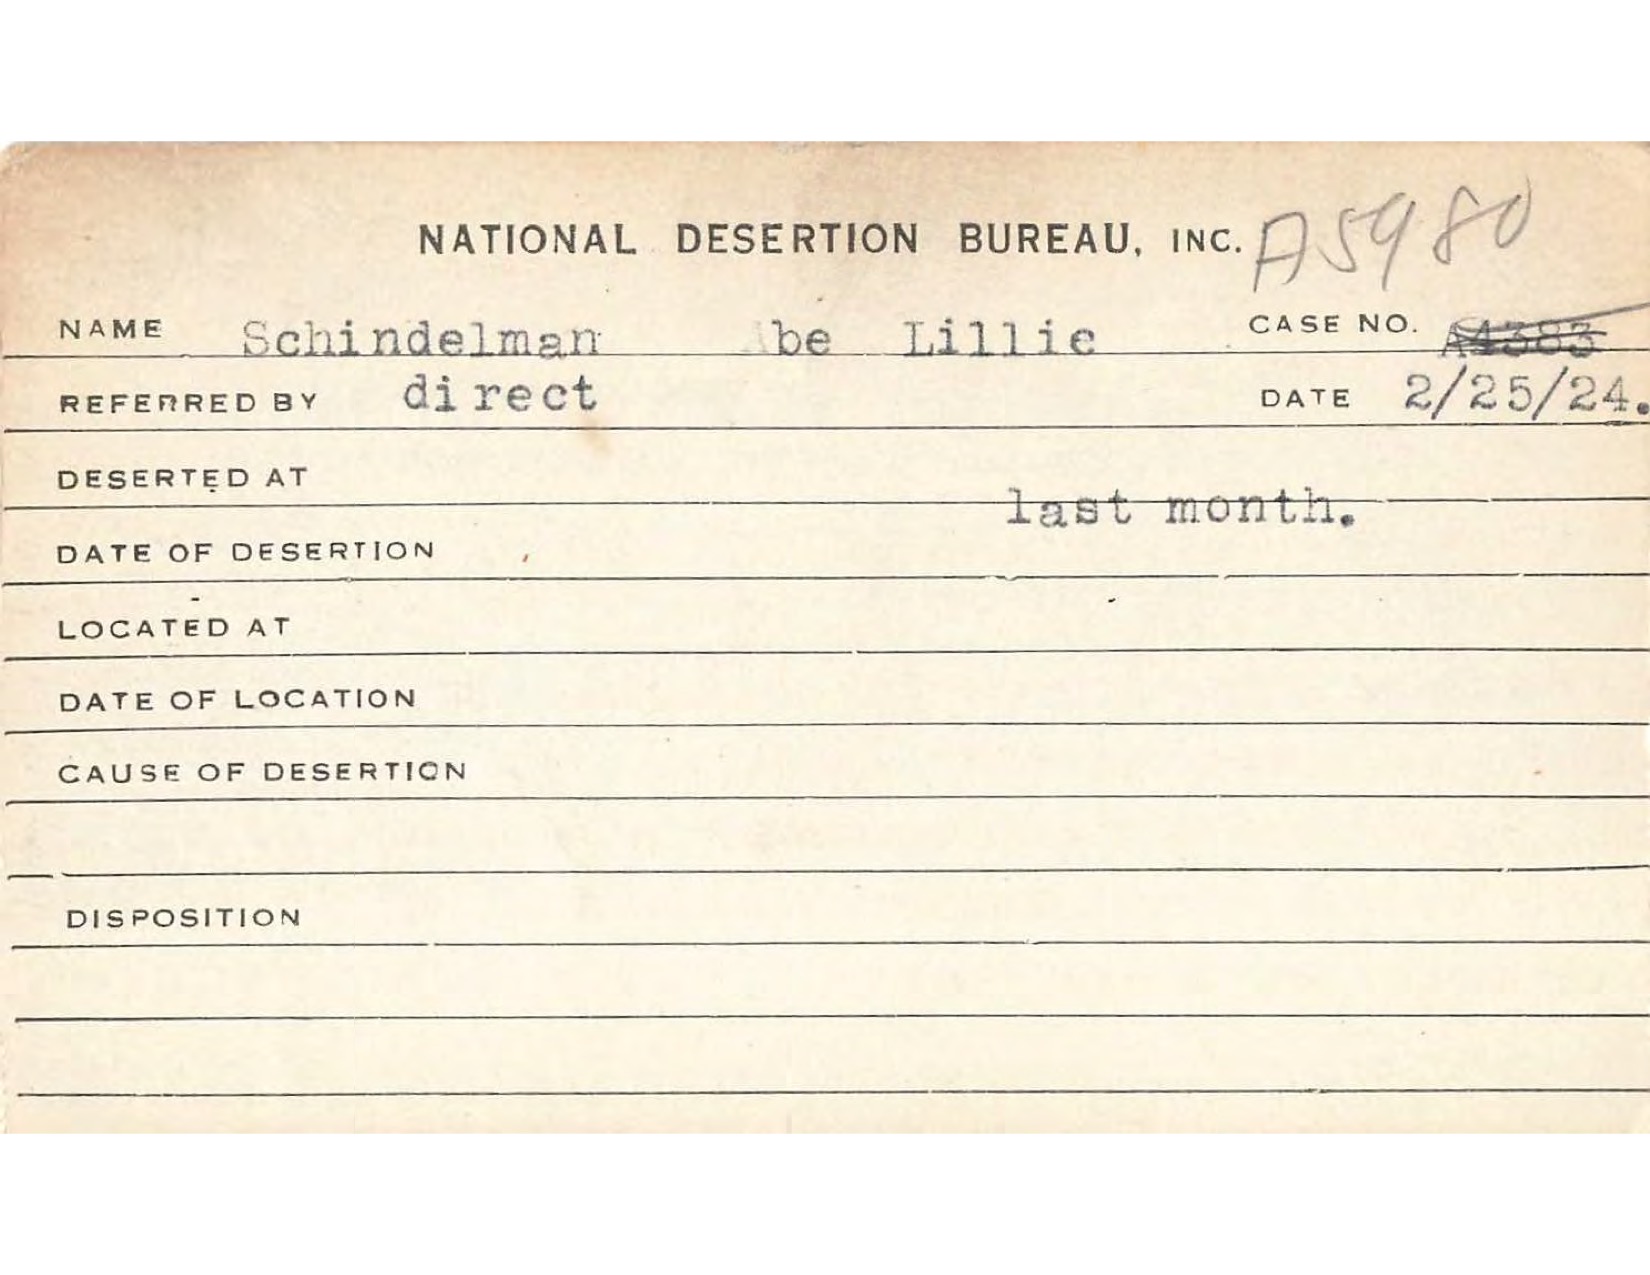 NATIONAL DESERTION BUREAU, INC. A5980
NAME Schindelman Abe Lillie CASE NO. A4383
REFERRED BY direct DATE 2/25/24.
DESERTED AT
last month.
DATE OF DESERTION
LOCATED AT
DATE OF LOCATION
CAUSE OF DESERTION
DISPOSITION